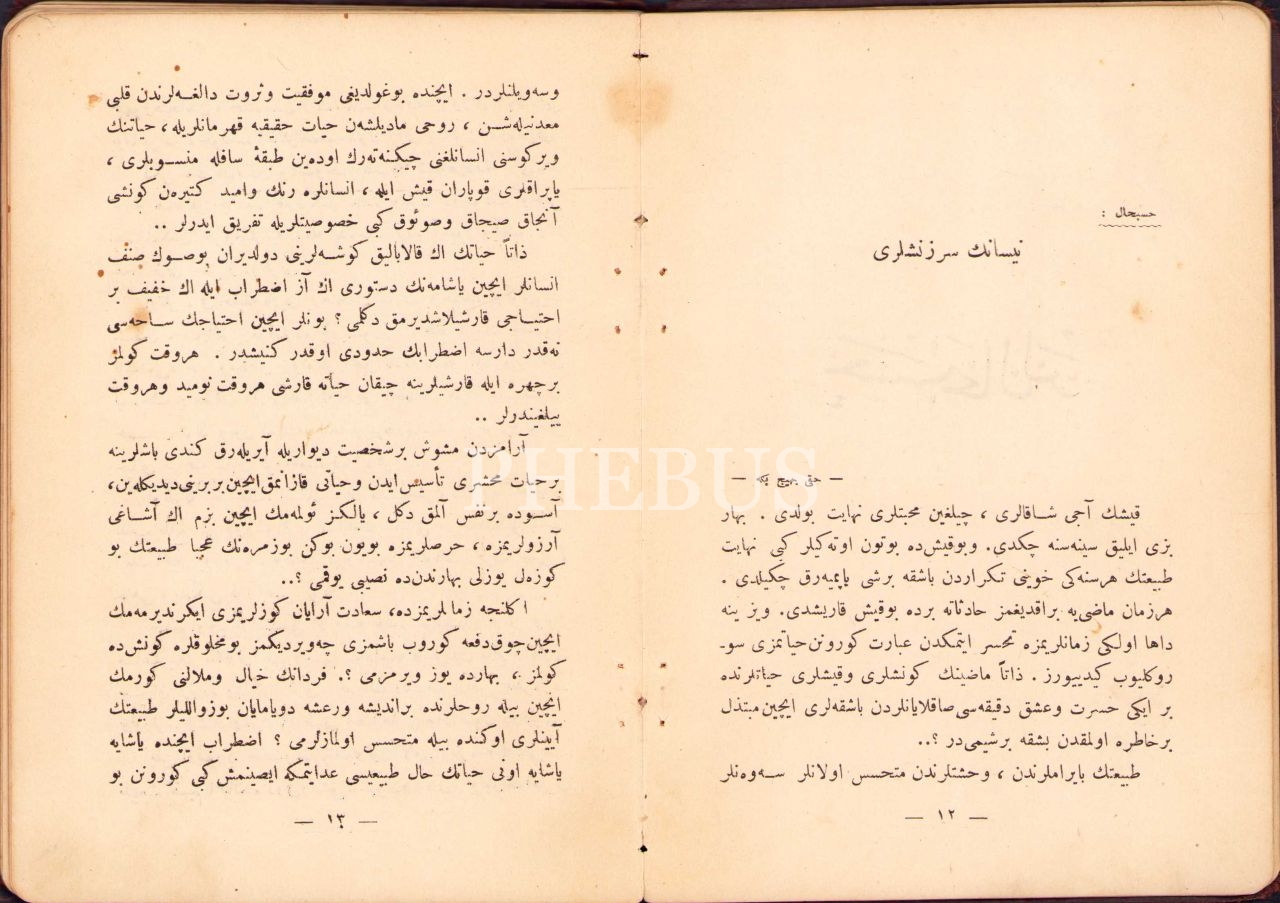 حسبحال :
نیسانك سرزنشلری
— حقی بهیج بكه —
قیشك آجی شاقالری ، چیلغین محبتلری نهایت بولدی . بهار
بزی ایلیق سینه‌سنه چكدی. وبوقیش‌ده بوتون اوته‌كیلر كبی نهایت
طبیعتك هرسنه‌كی خوینی تكراردن باشقه برشی یاپمیه‌رق چكیلدی .
هرزمان ماضی‌یه براقدیغمز حادثاته برده بوقیش قاریشدی. ویز ینه
داها اولكی زمانلریمزه تحسر ایتمكدن عبارت كورونن حیاتمزی سو-
روكلیوب كیدییورز . ذاتاً ماضینك كونشلری وقیشلری حیاتلرنده
بر ایكی حسرت وعشق دقیقه‌سی صاقلایانلردن باشقه‌لری ایچین مبتذل
برخاطره اولمقدن بشقه برشیمی‌در ؟..
طبیعتك بایراملرندن ، وحشتلرندن متحسس اولانلر سه‌وه‌نلر
— ١٢ —
وسه‌ویلنلردر . ایچنده بوغولدیغی موفقیت وثروت دالغه‌لرندن قلبی
معدنیله‌شن ، روحی مادیلشه‌ن حیات حقیقیه قهرمانلریله ، حیاتنك
ویركوسنی انسانلغنی چیكنه‌ته‌رك اوده‌ین طبقهٔ سافله منسوبلری ،
یاپراقلری قوپاران قیش ایله ، انسانلره رنك وامید كتیره‌ن كونشی
آنجاق صیجاق وصوئوق كبی خصوصیتلریله تفریق ایدرلر ..
ذاتاً حیاتك اك قالابالیق كوشه‌لرینی دولدیران بوصوك صنف
انسانلر ایچین یاشامه‌نك دستوری اك آز اضطراب ایله اك خفیف بر
احتیاجی قارشیلاشدیرمق دكلمی ؟ بونلر ایچین احتیاجك ساحه‌سی
نه‌قدر دارسه اضطرابك حدودی اوقدر كنیشدر . هروقت كولمز
برچهره ایله قارشیلرینه چیقان حیاته قارشی هروقت نومید وهروقت
ییلغیندرلر ..
آرامزدن مشوش برشخصیت دیواریله آیریله‌رق كندی باشلرینه
برحیات محشری تأسیس ایدن وحیاتی قازانمق ایچین بربرینی دیدیكله‌ین،
آسوده برنفس آلمق دكل ، یالكز ئولمه‌مك ایچین بزم اك آشاغی
آرزولریمزه ، حرصلریمزه بویون بوكن بوزمره‌نك عجبا طبیعتك بو
كوزه‌ل یوزلی بهارندن‌ده نصیبی یوقمی ؟..
اكلنجه زمانلریمزده، سعادت آرایان كوزلریمزی ایكرندیرمه‌مك
ایچین چوق دفعه كوروب باشمزی چه‌ویردیكمز بومخلوقلره كونش‌ده
كولمز ، بهارده یوز ویرمزمی ؟. فردانك خیال وملالنی كورمك
ایچین بیله روحلرنده براندیشه ورعشه دویامایان بوزواللیلر طبیعتك
آیینلری اوكنده بیله متحسس اولمازلرمی ؟ اضطراب ایچنده یاشایه
یاشایه اونی حیاتك حال طبیعیسی عدایتمكه ایصینمش كبی كورونن بو
— ١٣ —
PHEBUS